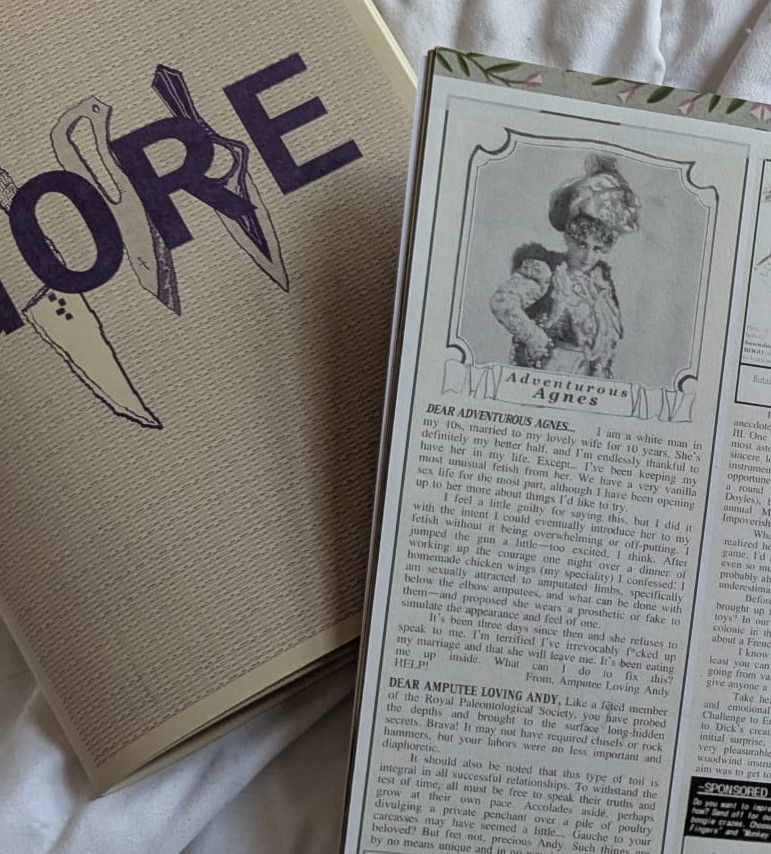 ORE
Adventurous
Agnes
DEAR ADVENTUROUS AGNES... I am a white man in
my 40s, married to my lovely wife for 10 years. She's
definitely my better half, and I'm endlessly thankful to
have her in my life. Except... I've been keeping my
most unusual fetish from her. We have a very vanilla
sex life for the most part, although I have been opening
up to her more about things I'd like to try.
I feel a little guilty for saying this, but I did it
with the intent I could eventually introduce her to my
fetish without it being overwhelming or off-putting. I
jumped the gun a little—too excited, I think. After
working up the courage one night over a dinner of
homemade chicken wings (my speciality) I confessed: I
am sexually attracted to amputated limbs, specifically
below the elbow amputees, and what can be done with
them—and proposed she wears a prosthetic or fake to
simulate the appearance and feel of one.
It's been three days since then and she refuses to
speak to me. I'm terrified I've irrevocably f*cked up
my marriage and that she will leave me. It's been eating
me up inside. What can I do to fix this?
HELP!
From, Amputee Loving Andy
DEAR AMPUTEE LOVING ANDY, Like a fêted member
of the Royal Paleontological Society, you have probed
the depths and brought to the surface long-hidden
secrets. Brava! It may not have required chisels or rock
hammers, but your labors were no less important and
diaphoretic.
It should also be noted that this type of toil is
integral in all successful relationships. To withstand the
test of time, all must be free to speak their truths and
grow at their own pace. Accolades aside, perhaps
divulging a private penchant over a pile of poultry
carcasses may have seemed a little... Gauche to your
beloved? But fret not, precious Andy. Such things are
by no means unique and in no
anecdote
III. One
most
sincere
instrument
opportune
a round
Doyles),
annual M
Impoverish
realized
game. I'd
even so
probably
underestima
Before
brought up
toys? In our
colonic in
about a Frenc
I know
least you can
going from va
give anyone a
Take
and emotional
Challenge to
to Dick's
initial surprise,
very pleasurable
woodwind instrum
aim was to get to
-SPONSORED
Do you want to impre
how? Send off for ou
boogie crazes. Choose
Fingers" and "Monkey